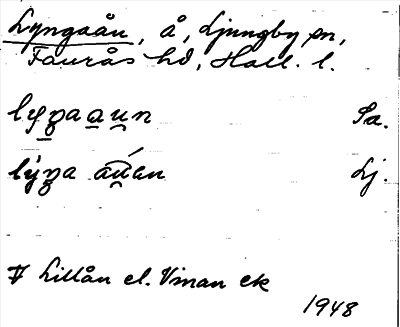 Lyngaån, å, Ljungby sn,
Faurås hd, Hall. l.
Sa.
lýŋa Lj.
Lillån el. Vinan ek
1948